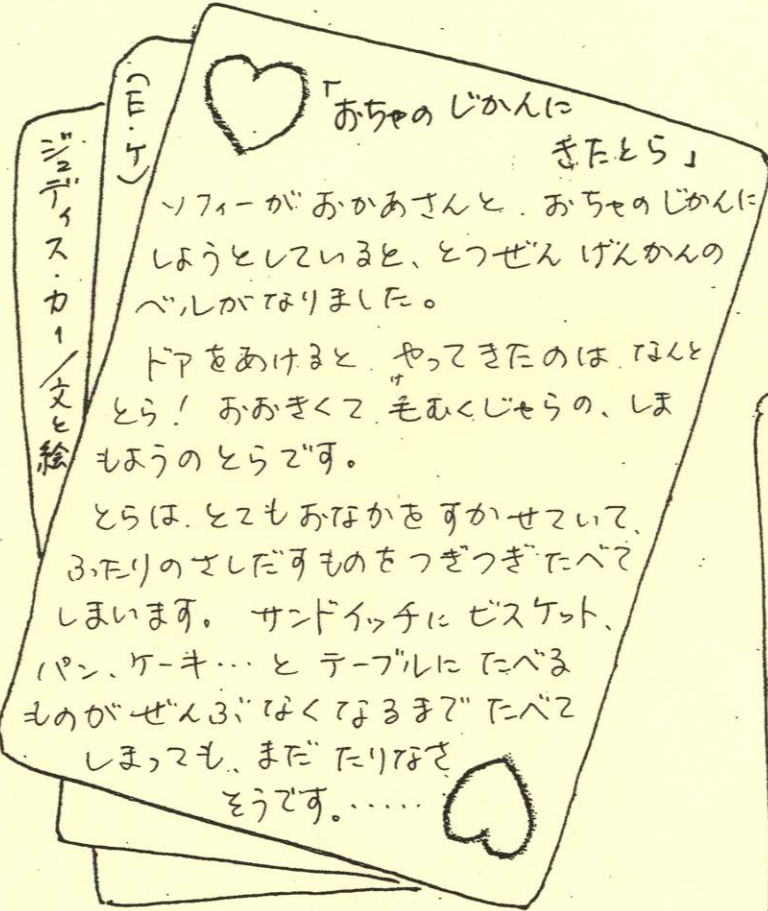 「おちゃのじかんに
きたとら」
ソフィーがおかあさんと、おちゃのじかんに
しようとしていると、とつぜん げんかんの
ベルがなりました。
ドアをあけると、やってきたのは、なんと
とら！ おおきくて、毛むくじゃらの、しま
け
もようのとらです。
とらは、とてもおなかをすかせていて、
ふたりのさしだすものをつぎつぎたべて
しまいます。 サンドイッチに ビスケット、
パン、ケーキ…と テーブルに たべる
ものがぜんぶなくなるまで たべて
しまっても、まだ たりなさ
そうです。……
(E・ケ)
ジュディス・カー／文と絵